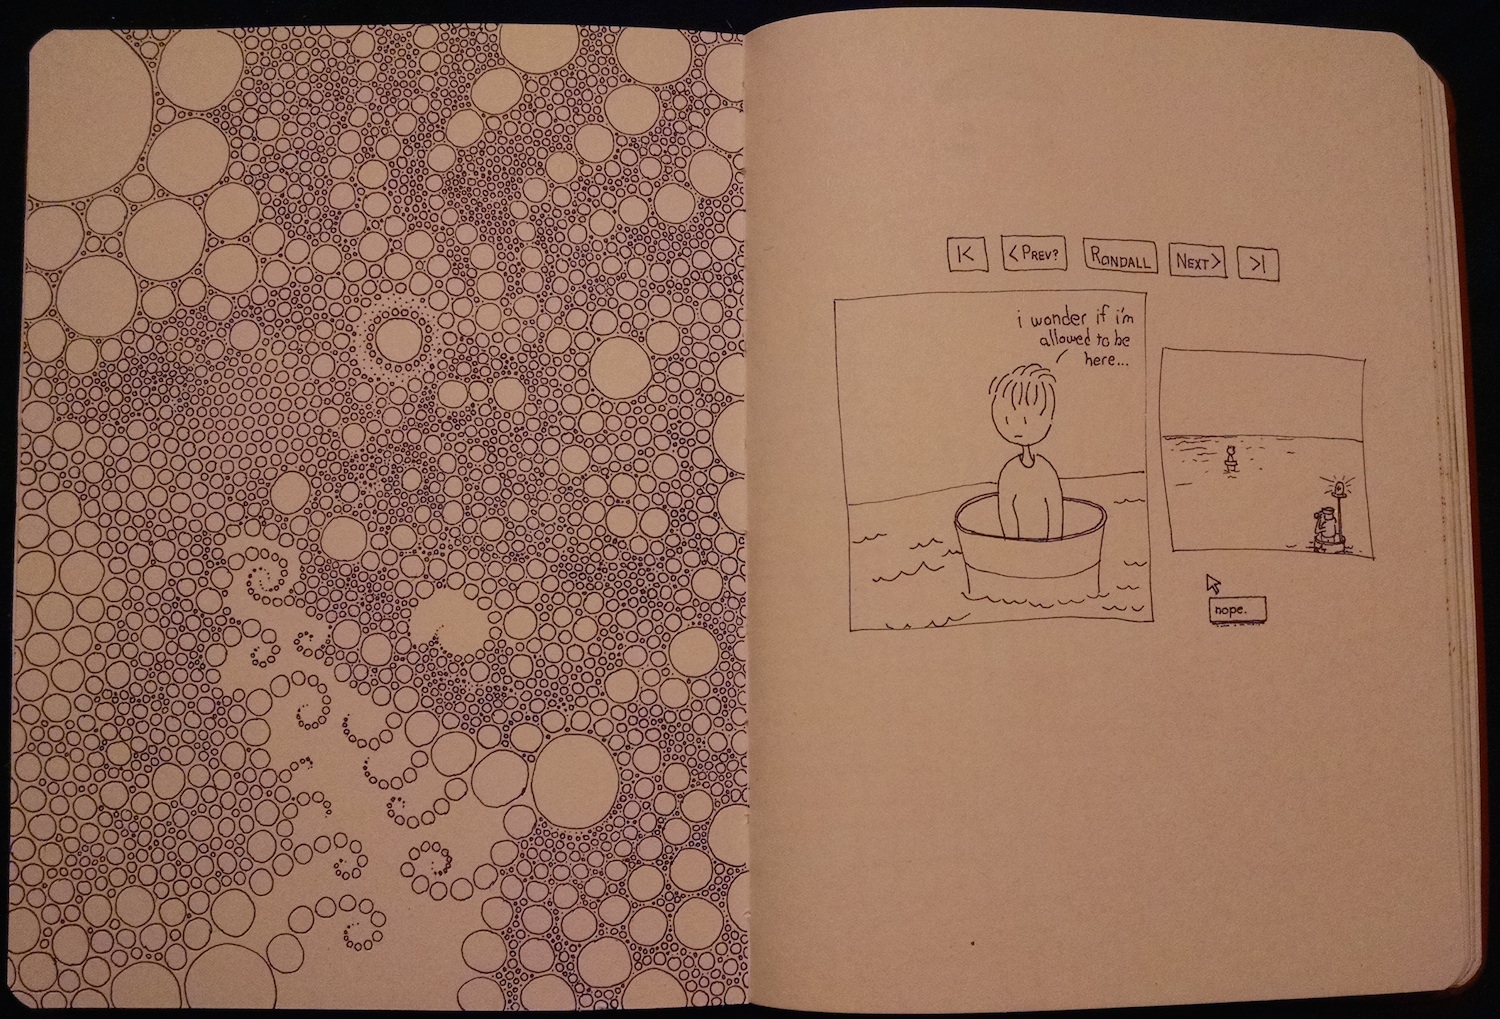 |<
< PREV?
RANDALL
NEXT >
>|
i wonder if i'm
allowed to be
here...
nope.